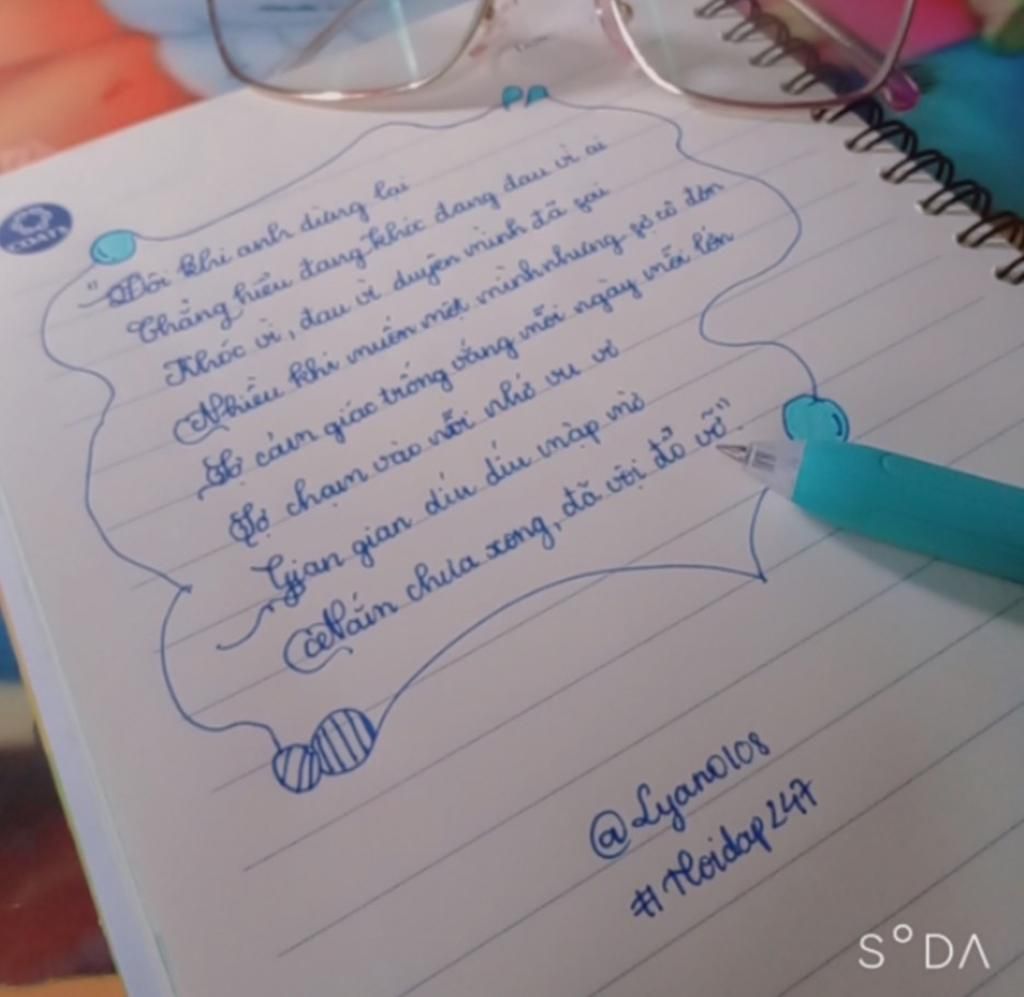 "Đôi khi anh dừng lại
Chẳng hiểu đang khóc đang đau vì ai
Khóc vì, đau vì duyên mình đã sai
Nhiều khi muốn một mình nhưng sợ cô đơn
Sợ cảm giác trống vắng mỗi ngày mỗi lớn
Sợ chạm vào nỗi nhớ vu vơ
Gian gian díu díu mập mờ
Nắm chưa xong, đã vội đổ vỡ".
@Lyan0108
#Hoidap247
SODA